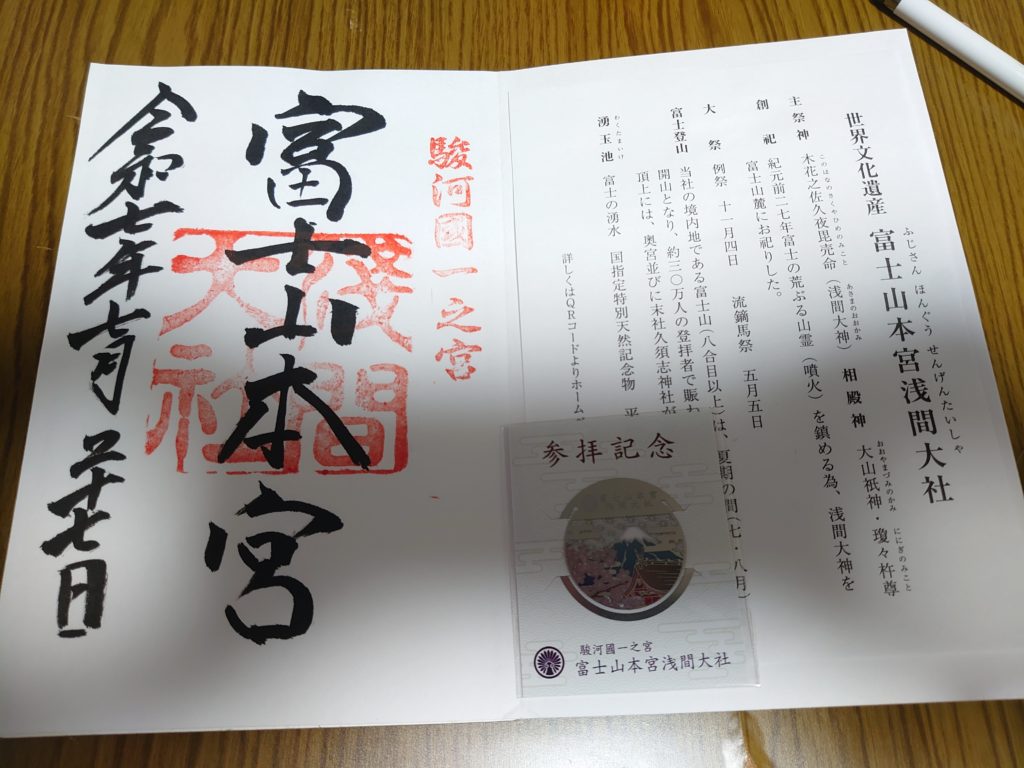 世界文化遺産 富士山本宮浅間大社
ふじさん ほんぐう せんげんたいしゃ
主祭神 木花之佐久夜毘売命（浅間大神） 相殿神 大山祇神・瓊々杵尊
このはなのさくやひめのみこと あさまのおおかみ おおやまづみのかみ ににぎのみこと
創祀 紀元前二七年富士の荒ぶる山霊（噴火）を鎮める為、浅間大神を
富士山麓にお祀りした。
大祭 例祭 十一月四日 流鏑馬祭 五月五日
富士登山 当社の境内地である富士山（八合目以上）は、夏期の間（七・八月）
開山となり、約三〇万人の登拝者で賑わ
頂上には、奥宮並びに末社久須志神社が
湧玉池 富士の湧水 国指定特別天然記念物
わくたまいけ
詳しくはQRコードよりホーム
駿河國一之宮
富士山本宮
浅間
大社
令和七年七月二十七日
参拝記念
駿河國一之宮
富士山本宮浅間大社